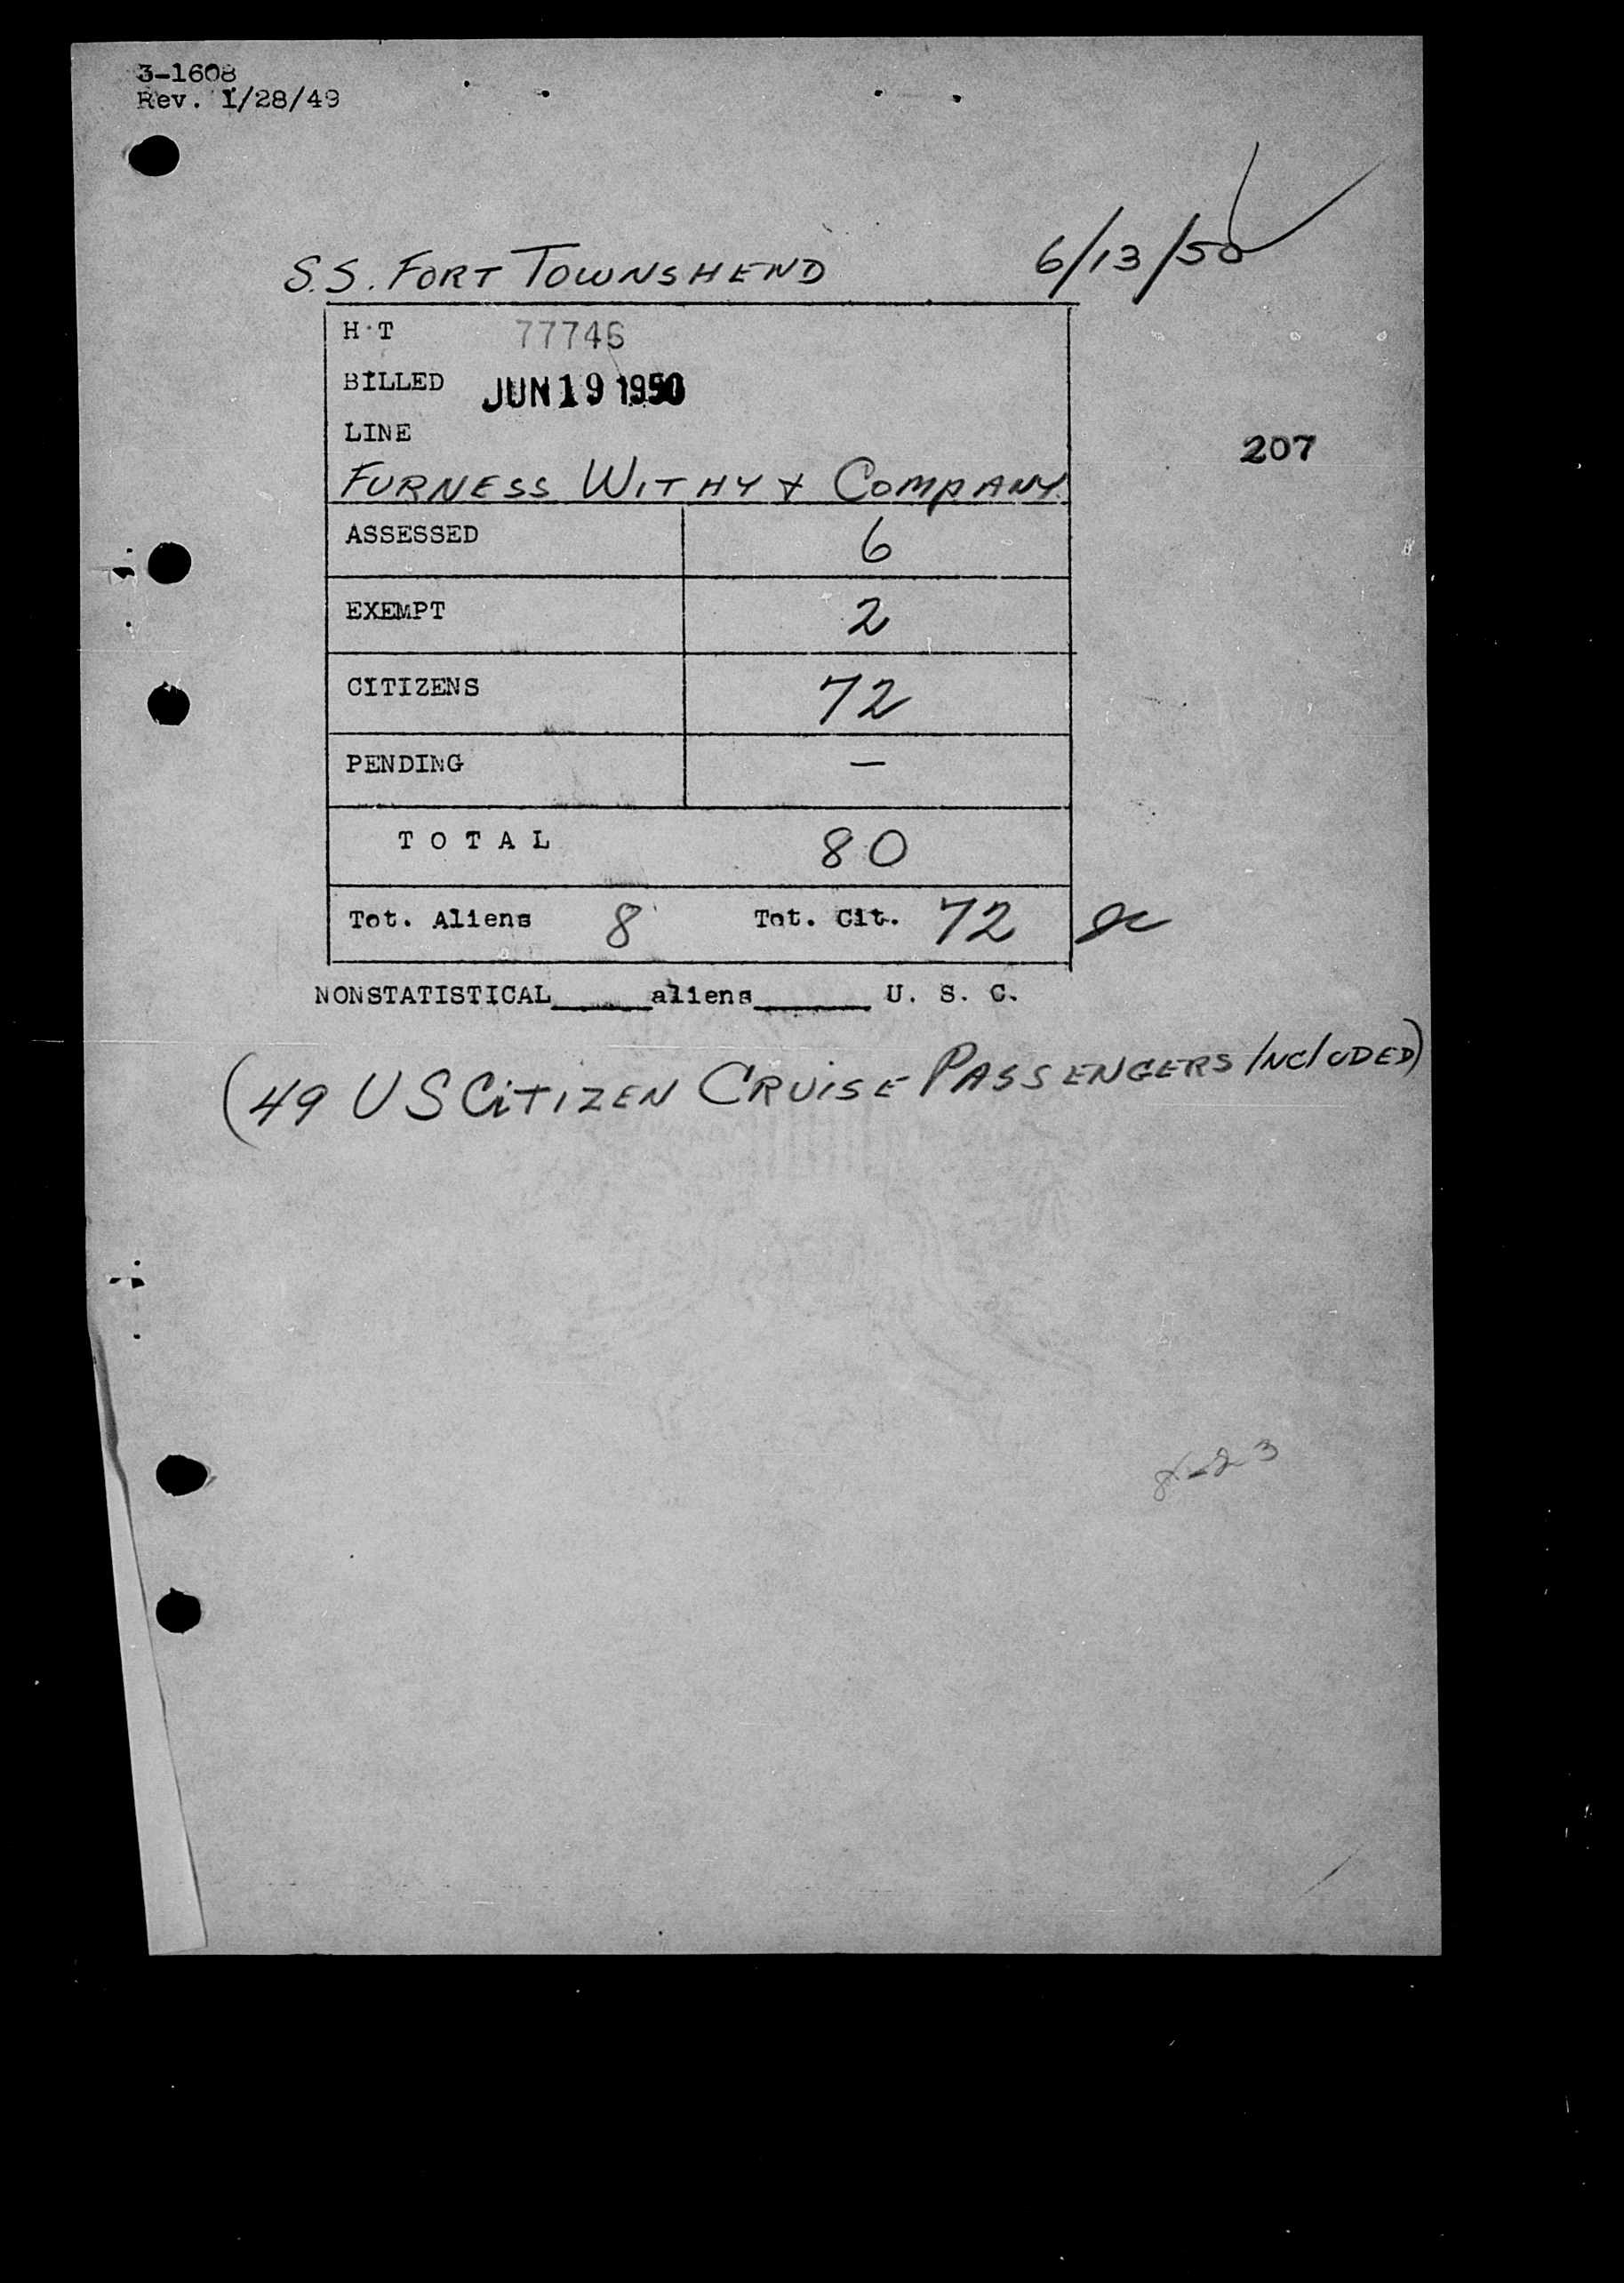 3-1608
Rev. 1/28/49
S.S. FORT TOWNSHEND 6/13/50
H T 77746
BILLED JUN 19 1950
LINE
207
FURNESS WITHY & COMPANY
ASSESSED 6
EXEMPT 2
CITIZENS 72
PENDING —
TOTAL 80
Tot. Aliens 8 Tot. Cit. 72
NONSTATISTICAL______aliens_______ U. S. C.
(49 US CITIZEN CRUISE PASSENGERS INCLUDED)
8-23